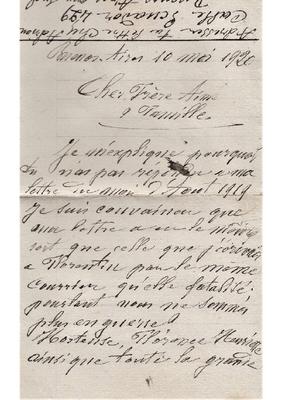 Adresser ta lettre chez
Calle Ecuador 429
Buenos Aires 10 mai 1920
Cher Frère Aimé
& Famille
Je m'explique pourquoi
tu n'as pas répondu a ma
lettre du mois d'Aout 1919
Je suis convaincu que
lettre a eu le même
sort que celle que j'écrivais
a Florentin par le même
courrier qu'elle fatalité.
pourtant nous ne sommes
plus en guerre!
Hortense, Florence Henriette
ainsi que toute la grande